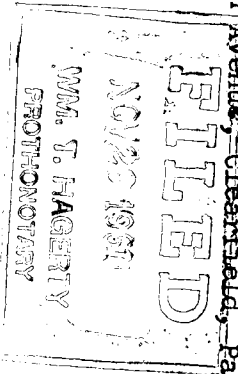 Avenue, Clearfield, Pa
FILED
NOV 26 1961
WM. T. HAGERTY
PROTHONOTARY